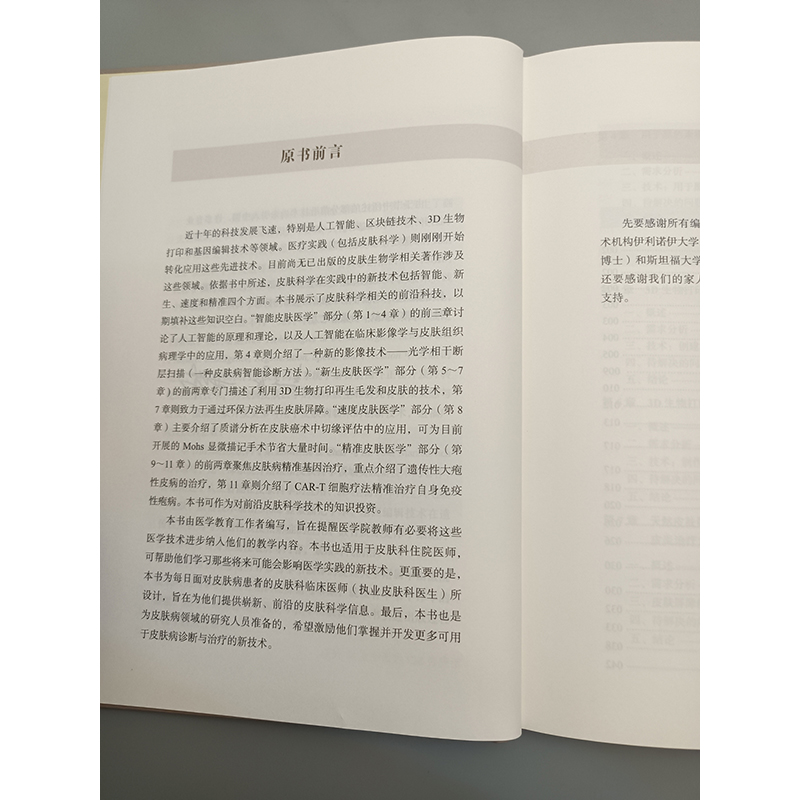 原书前言
近十年的科技发展飞速，特别是人工智能、区块链技术、3D 生物
打印和基因编辑技术等领域。医疗实践（包括皮肤科学）则刚刚开始
转化应用这些先进技术。目前尚无已出版的皮肤生物学相关著作涉及
这些领域。依据书中所述，皮肤科学在实践中的新技术包括智能、新
生、速度和精准四个方面。本书展示了皮肤科学相关的前沿科技，以
期填补这些知识空白。“智能皮肤医学”部分（第 1～4 章）的前三章讨
论了人工智能的原理和理论，以及人工智能在临床影像学与皮肤组织
病理学中的应用，第 4 章则介绍了一种新的影像技术——光学相干断
层扫描（一种皮肤病智能诊断方法）。“新生皮肤医学”部分（第 5～7
章）的前两章专门描述了利用 3D 生物打印再生毛发和皮肤的技术，第
7 章则致力于通过环保方法再生皮肤屏障。“速度皮肤医学”部分（第 8
章）主要介绍了质谱分析在皮肤癌术中切缘评估中的应用，可为目前
开展的 Mohs 显微描记手术节省大量时间。“精准皮肤医学”部分（第
9～11 章）的前两章聚焦皮肤病精准基因治疗，重点介绍了遗传性大疱
性皮病的治疗，第 11 章则介绍了 CAR-T 细胞疗法精准治疗自身免疫
性疱病。本书可作为对前沿皮肤科学技术的知识投资。
本书由医学教育工作者编写，旨在提醒医学院教师有必要将这些
医学技术进步纳入他们的教学内容。本书也适用于皮肤科住院医师，
可帮助他们学习那些将来可能会影响医学实践的新技术。更重要的是，
本书为每日面对皮肤病患者的皮肤科临床医师（执业皮肤科医生）所
设计，旨在为他们提供崭新、前沿的皮肤科学信息。最后，本书也是
为皮肤病领域的研究人员准备的，希望激励他们掌握并开发更多可用
于皮肤病诊断与治疗的新技术。
先要感谢所有编
术机构伊利诺伊大学
博士）和斯坦福大学
还要感谢我们的家人
支持。